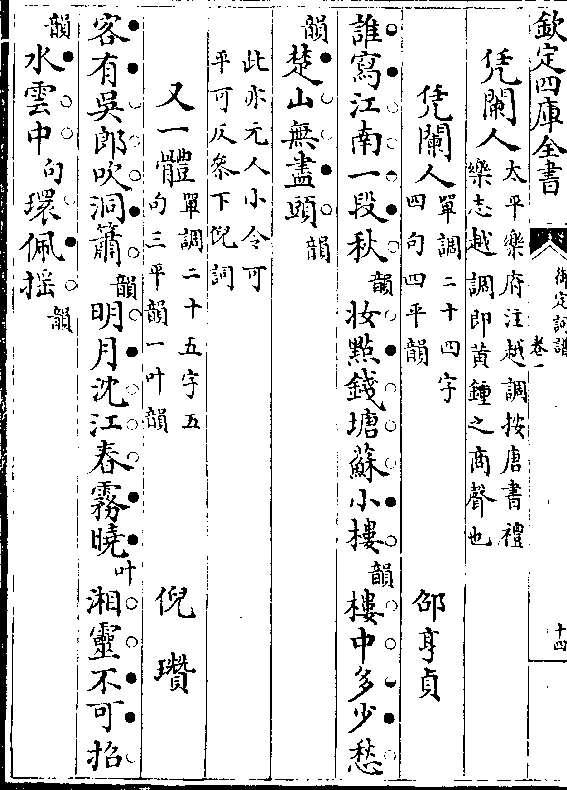 欽定四庫全書
御定詞譜
卷一
十四
凭闌人
太平樂府注越調按唐書禮
樂志越調即黃鍾之商聲也
凭闌人
單調二十四字
四句四平韻
邵亨貞
誰寫江南一段秋韻妝點錢塘蘇小樓韻樓中多少愁
韻楚山無盡頭韻
此亦元人小令可
平可仄參下倪詞
又一體
單調二十五字五
句三平韻一叶韻
倪瓚
客有吳郎吹洞簫韻明月沈江春霧曉叶湘靈不可招
韻水雲中句環佩摇韻